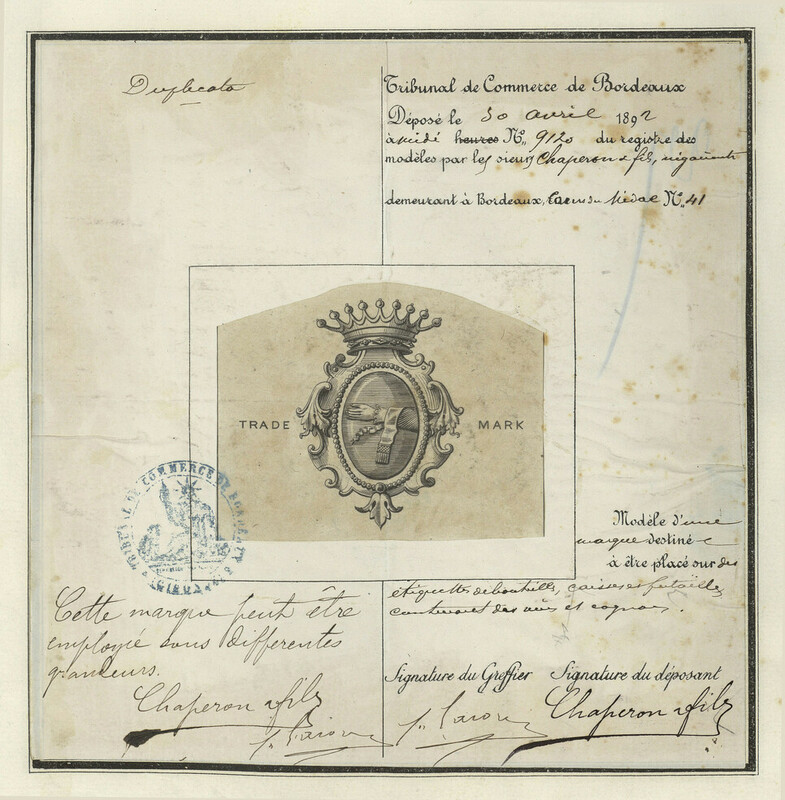 Duplicata
Tribunal de Commerce de Bordeaux
Déposé le 30 avril 1892
à midi heures N° 9120 du registre des
modèles par les sieurs Chaperon & fils, négociants
demeurant à Bordeaux, Cours du Médoc N° 41
TRADE MARK
TRIBUNAL DE COMMERCE DE BORDEAUX
GIRONDE
Modèle d'une
marque destiné e
à être placé sur des
étiquettes de bouteilles, caisses et futailles
contenant des vins et cognacs.
Cette marque peut être
employée sous differentes
grandeurs.
Chaperon & fils
Signature du Greffier Signature du déposant
Chaperon & fils